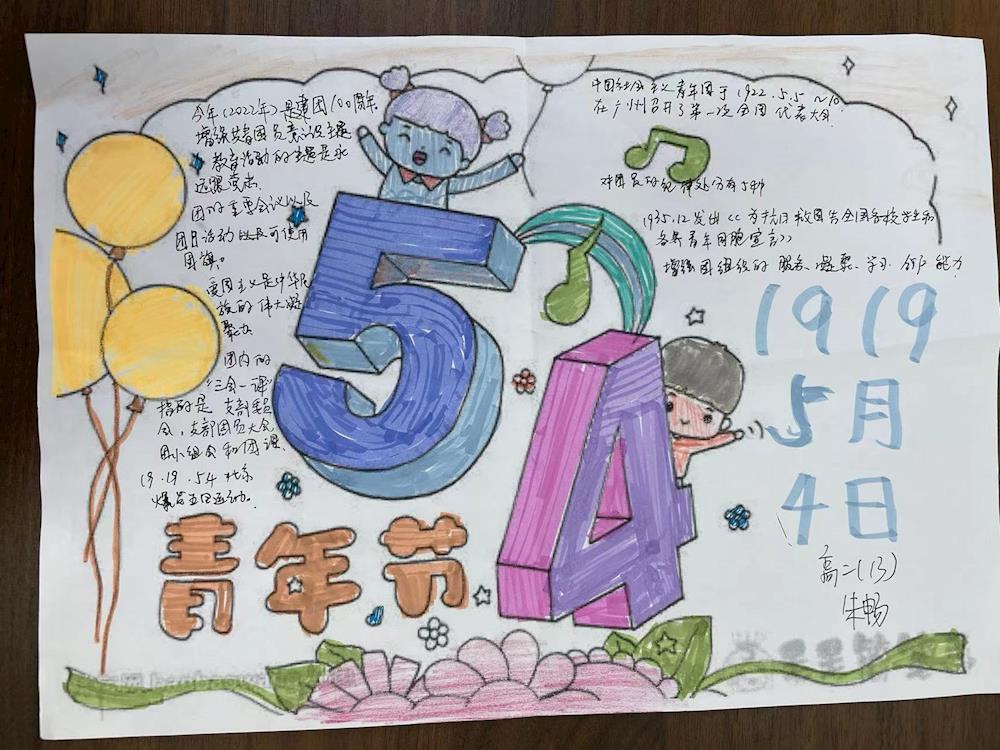 今年(2022年)是建团100周年
增强共青团员意识主题
教育活动的主题是永
远跟党走
团的重要会议以及
团日活动以及可使用
团旗。
爱国主义是中华民
族的伟大凝
聚力
团内的
"三会一课"
指的是 支部委员
会,支部团员大会,
团小组会和团课
19.19.54 北京
爆发五四运动。
中国社会主义青年团于1922.5.5~10
在广州召开了第一次全国代表大会
对团员的纪律处分有5种
1935.12发出<<为抗日救国告全国各校学生和
各界青年同胞宣言>>
增强团组织的服务、凝聚、学习、合作能力
5
4
1919
5月
4日
青年节
高二(13)
朱畅